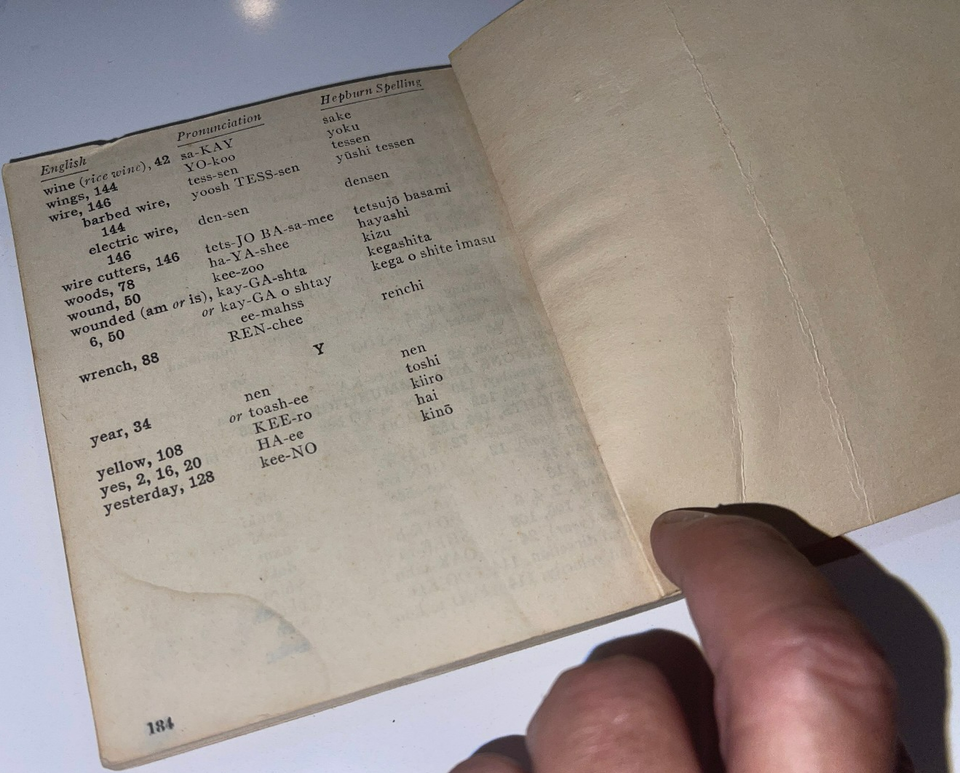 English Pronunciation Hepburn Spelling
wine (rice wine), 42 sa-KAY sake
wings, 144 YO-koo yoku
wire, 146 tess-sen tessen
barbed wire, yoosh TESS-sen yūshi tessen
144
electric wire, den-sen densen
146
wire cutters, 146 tets-JO BA-sa-mee tetsujō basami
woods, 78 ha-YA-shee hayashi
wound, 50 kee-zoo kizu
wounded (am or is), kay-GA-shta kegashita
6, 50 or kay-GA o shtay kega o shite imasu
ee-mahss
wrench, 88 REN-chee renchi
Y
year, 34 nen nen
or toash-ee toshi
yellow, 108 KEE-ro kiiro
yes, 2, 16, 20 HA-ee hai
yesterday, 128 kee-NO kinō
184